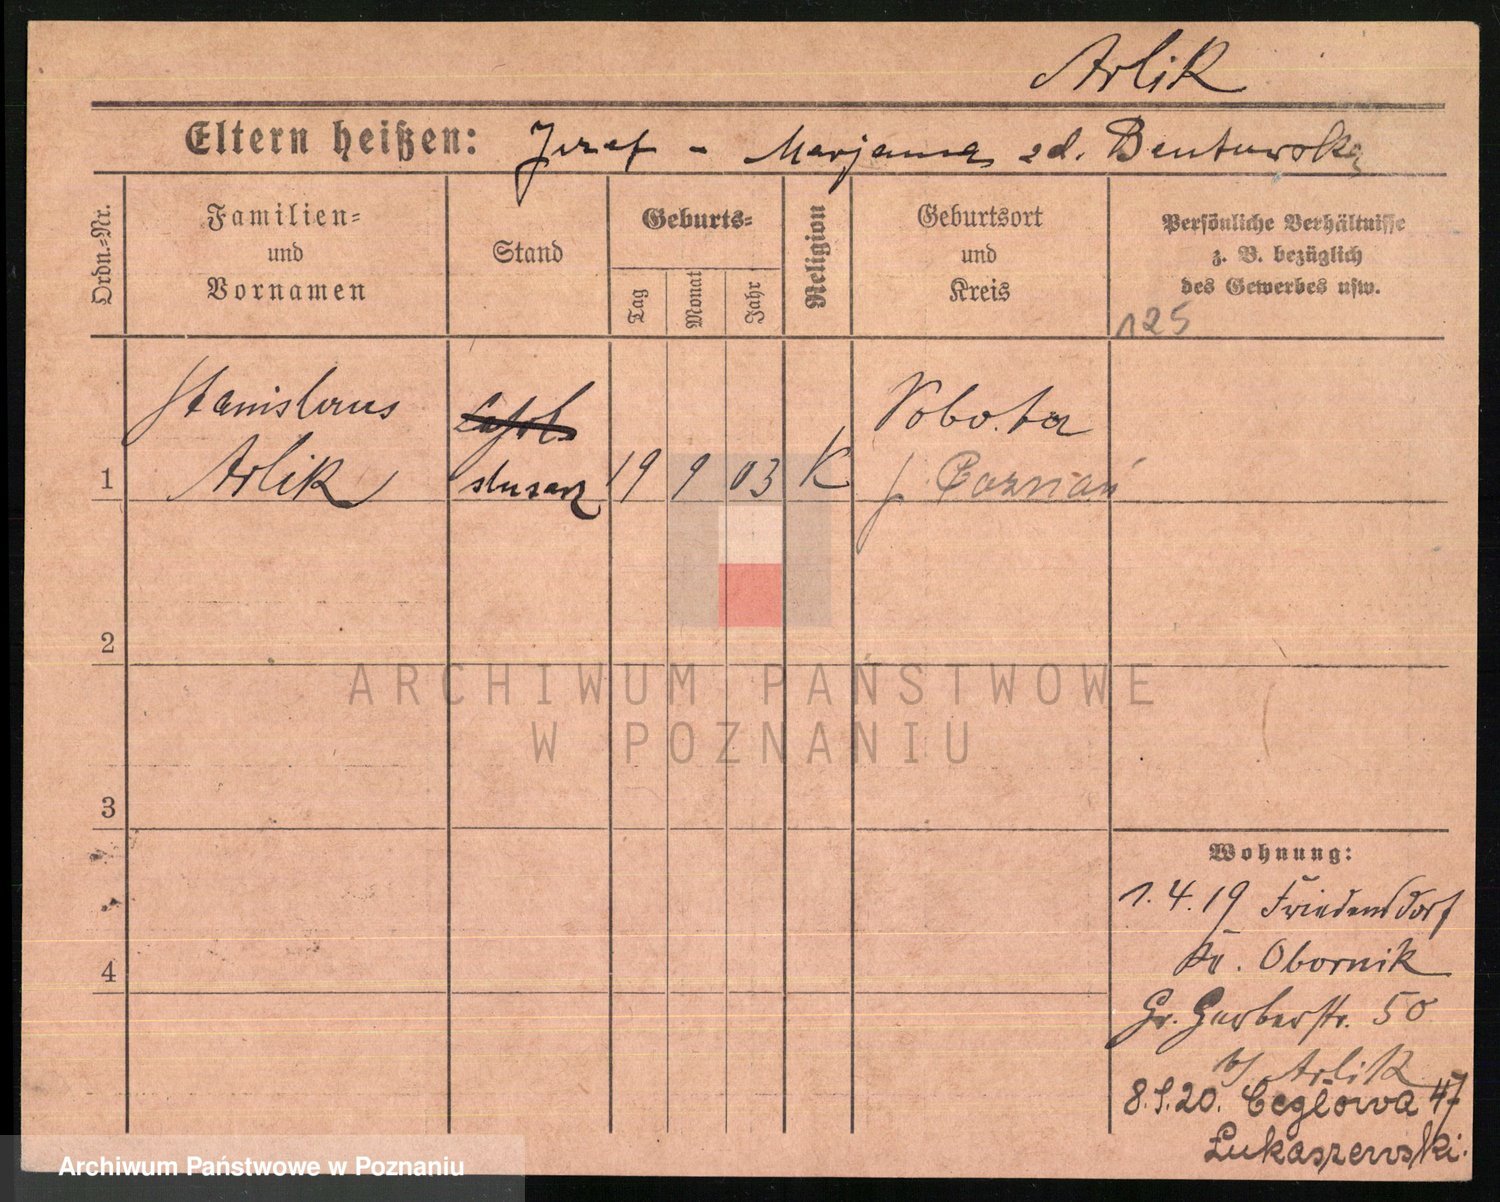 Arlik
Eltern heißen: Jozef - Marjanna zd. Bentowska
Ordn.=Nr.
Familien=
und
Vornamen
Stand
Geburts=
Tag
Monat
Jahr
Religion
Geburtsort
und
Kreis
Persönliche Verhältnisse
z. B. bezüglich
des Gewerbes usw.
125
Stanislaus
Arlik
ślusarz
1
19 9 03 K
Sobota
Poznań
2
ARCHIWUM PAŃSTWOWE
W POZNANIU
3
Wohnung:
1.4.19 Friedensdorf
Kr. Obornik
4
Gr. Gerberstr. 50
b/ Arlik
8.9.20. Ceglowa 47
Łukaszewski.
Archiwum Państwowe w Poznaniu